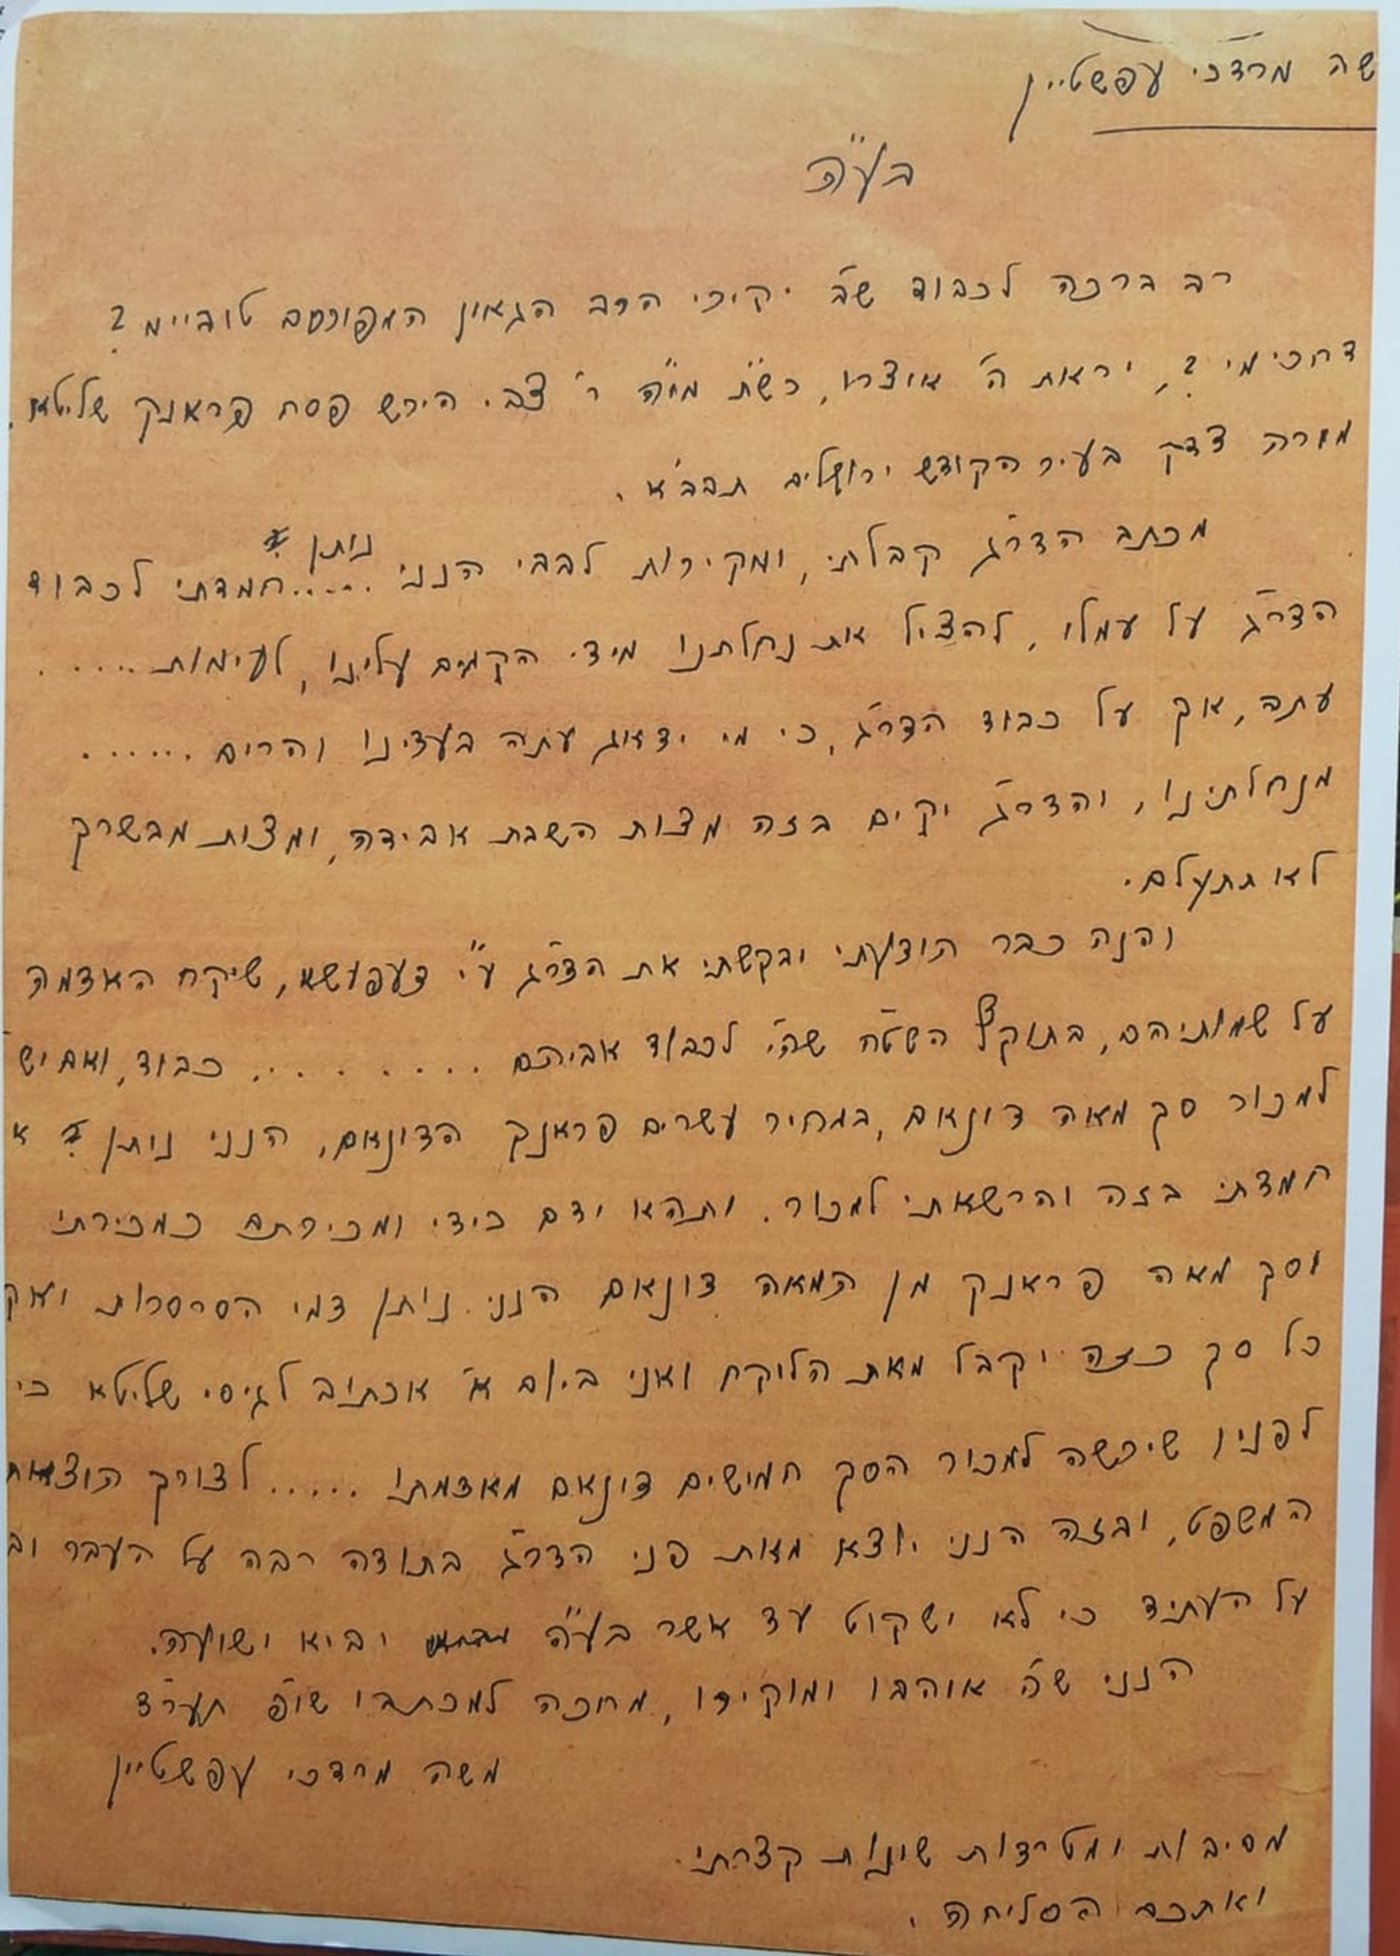 שה מרדכי עפשטיין
בע"ה
רב ברכה לכבוד ש"ב יקירי הרב הגאון המפורסם טוביימ?
דחכימי?, יראת ה' אוצרו, כש"ת מו"ה ר' צבי הירש פסח פראנק שליטא.
מורה צדק בעיר הקודש ירושלים תבב"א.
מכתב הדר"ג קבלתי, ומקירות לבבי הנני ..... חמדתי לכבוד
ניתן
הדר"ג על עמלו, להציל את נחלתנו מידי הקמים עלינו, לעימות .....
עתה, אך על כבוד הדר"ג, כי מי ידאוג עתה בעדינו והרים ......
מנחלתינו, והדר"ג יקים בזה מצות השבת אבידה, ומצות מבשרך
לא תתעלם.
והנה כבר הודעתי ובקשתי את הדר"ג ע"י דעפושא, שיקח האדמה
על שמותיהם, בתוקף השטח שהי' לכבוד אביהם ........ כבוד, ואם יש
למכור סך מאה דונאם, במחיר עשרים פראנק הדונאם, הנני ניתן א
חמדתי בזה והרשאתי למכור. ותהא ידם כידי ומכירתם כמכירתי
וסך מאה פראנק מן המאה דונאם הנני ניתן דמי הסרסרות ואך
כל סך כזה יקבל מאת הלוקח ואני ביום א' אכתוב לגיסי שליטא כי
לפניו שירשה למכור הסך חמישים דונאם מאדמתו ..... לצורך הוצאות
המשפט, ובזה הנני יוצא מאת פני הדר"ג בתודה רבה על העבר וב
על העתיד כי לא ישקוט עד אשר בע"ה יביא ישועה.
הנני ש"ב אוהבו ומוקירו, מחכה למכתבו שופ תער"ד
משה מרדכי עפשטיין
מסיבות ומטרדות שונות קצרתי.
ואתכם הסליחה.